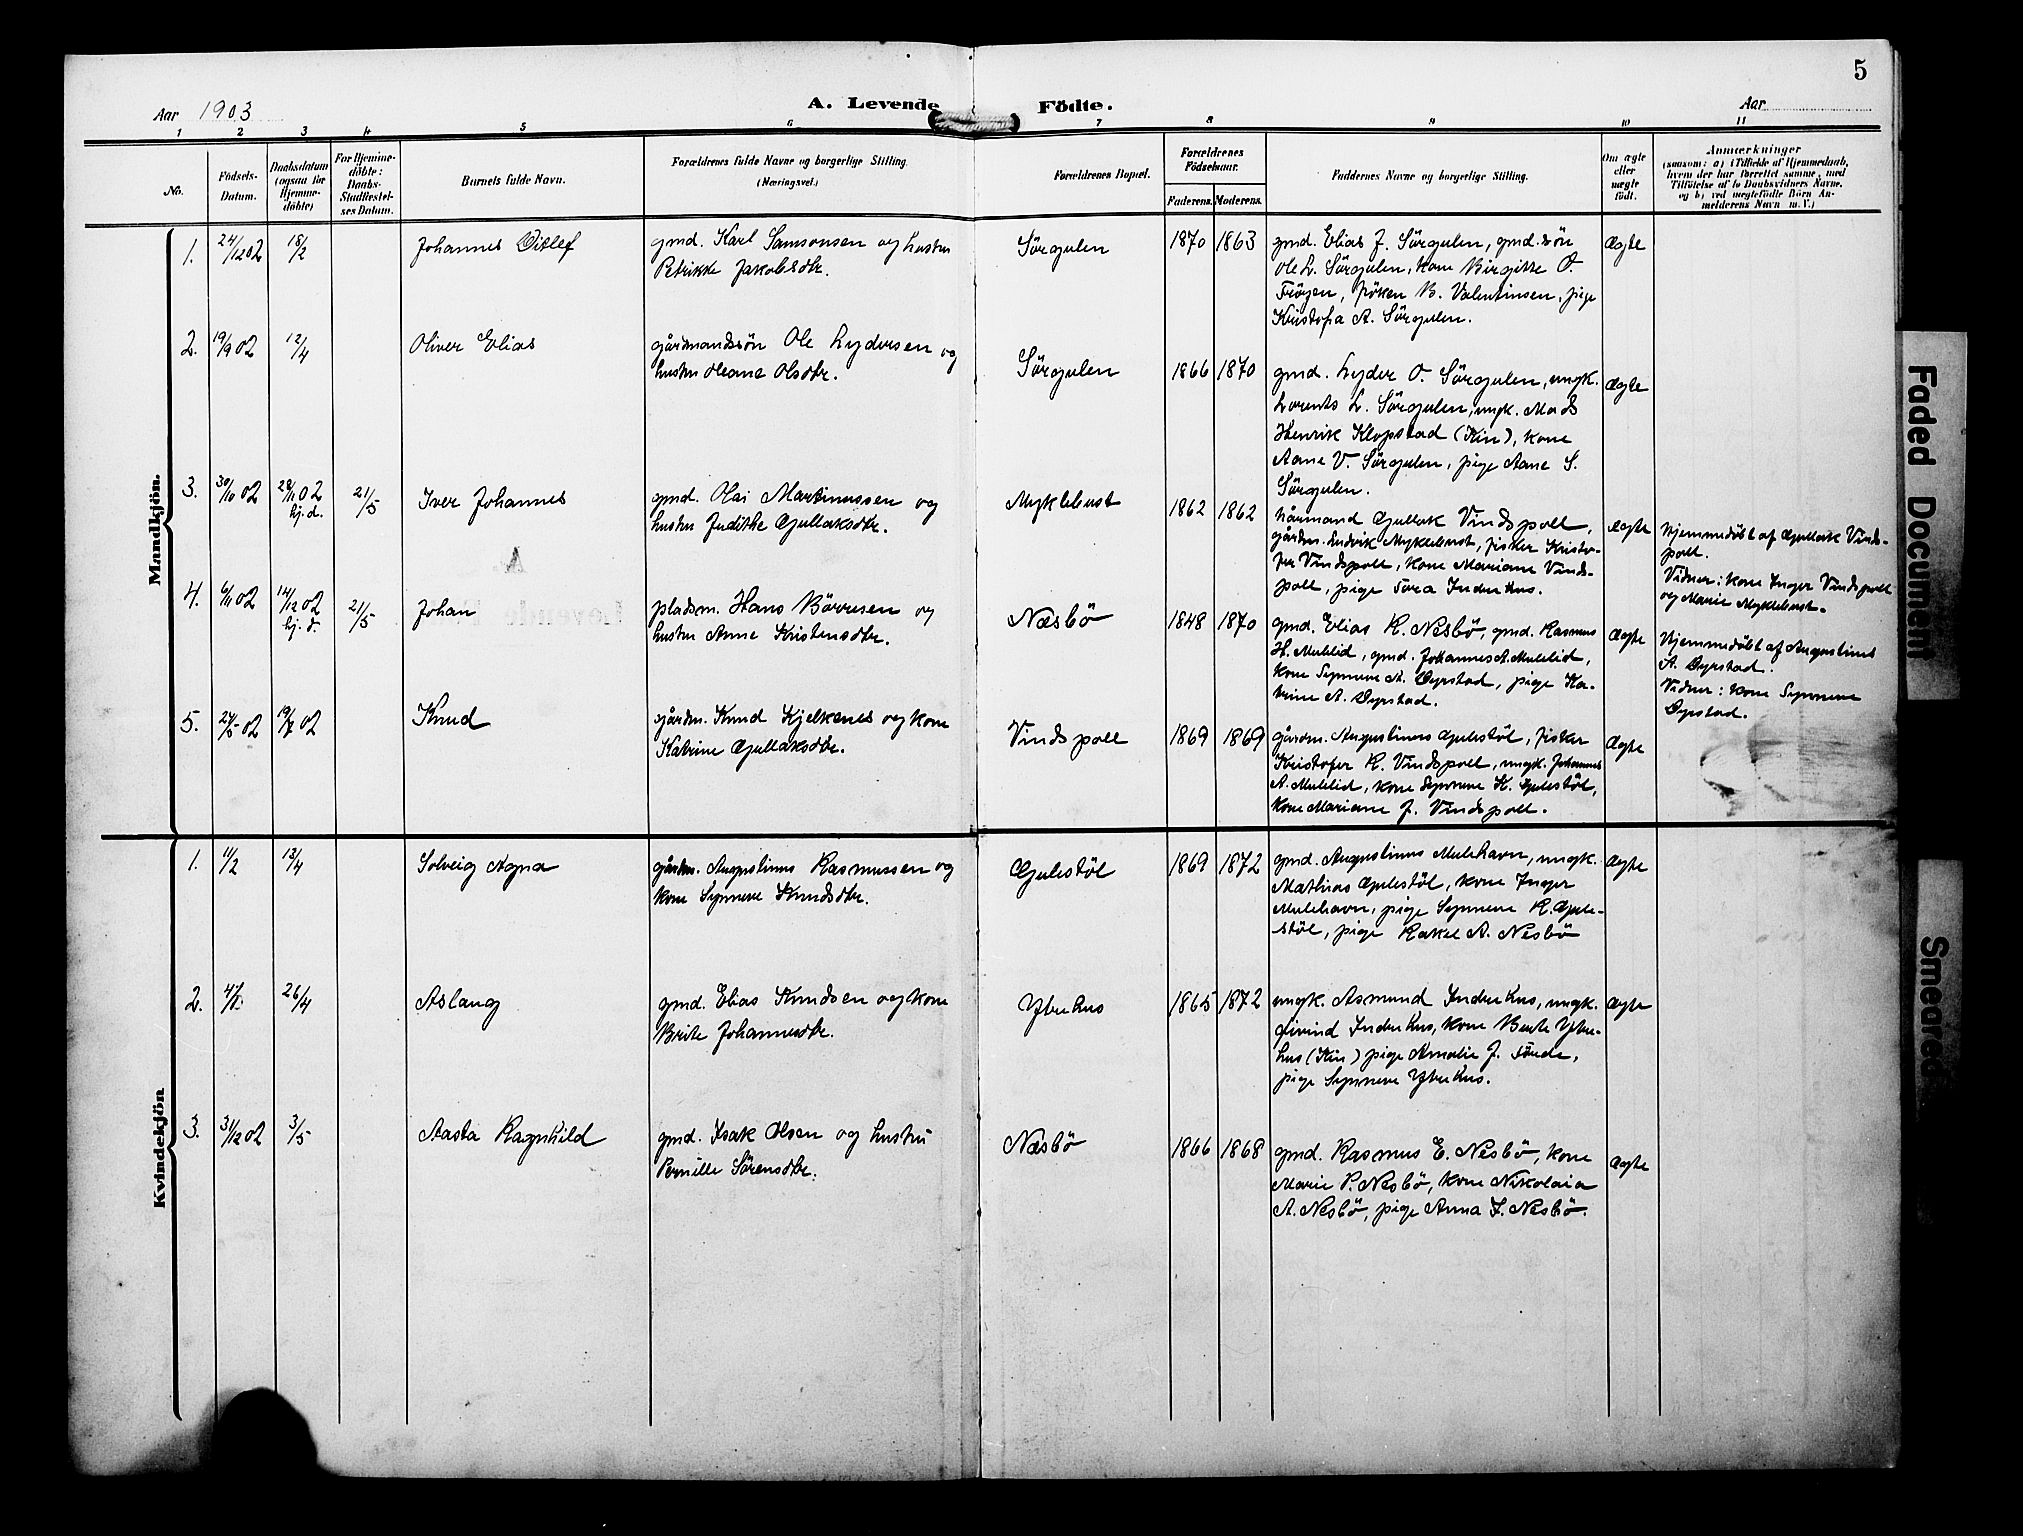 5
Aar 1903
A. Levende Födte.
Aar
1 2 3 4 5 6 7 8 9 10 11
No.
Födsels-
Datum.
Daabsdatum
(ogsaa for
Hjemme-
döbte)
For Hjemme-
döbte:
Daabs-
Stadfæstel-
ses Datum.
Barnets fulde Navn.
Forældrenes fulde Navne og borgerlige Stilling.
(Næringsvei.)
Forældrenes Bopæl.
Forældrenes
Födselsaar.
Faderens. Moderens.
Faddernes Navne og borgerlige Stilling.
Om ægte
eller
uægte
födt.
Anmærkninger
(saasom: a) i Tilfælde af Hjemmedaab,
hvem der har forrettet samme, med
Tilföielse af to Daabsvidners Navne,
og b) ved uægtefödte Börn An-
melderens Navn m. V.)
Mandkjön.
1. 24/12 02 18/2 Johannes Ditlef
gmd. Karl Samsonsen og hustru
Petrikke Jakobsdtr.
Sörgulen 1870 1863
gmd. Elias J. Sörgulen, gmd.sön
Ole L. Sörgulen, kone Birgitte O.
Fröyen, fröken B. Valentinsen, pige
Kristofa A. Sörgulen.
Ægte
2. 19/9 02 12/4 Oliver Elias
gårdmandssön Ole Lydersen og
hustru Oleane Olsdtr.
Sörgulen 1866 1870
gmd. Lyder O. Sörgulen, ungk.
Lorents L. Sörgulen, ungk. Mads
Henrik Klopstad (Kin), kone
Anne V. Sörgulen, pige Anne S.
Sörgulen.
Ægte
3. 30/10 02 28/11 02
hj. d.
21/5 Iver Johannes
gmd. Olai Martinussen og
hustru Judithe Gullaksdtr.
Myklebust 1862 1862
kårmand Gullak Vindspoll,
gårdm. Ludvik Myklebust, fisker Kristo-
fer Vindspoll, kone Mariane Vinds-
poll, pige Tora Inderhus.
Ægte
Hjemmedöbt af Gullak Vinds-
poll.
Vidner: kone Inger Vindspoll
og Marie Myklebust.
4. 6/11 02 14/12 02
hj. d.
21/5 Johan
pladsm. Hans Börresen og
hustru Anne Kristensdtr.
Næsbö 1848 1870
gmd. Elias R. Nesbö, gmd. Rasmus
H. Mulelid, gmd. Johannes A. Mulelid,
kone Synneve A. Dyrstad, pige Ka-
trine A. Dyrstad.
Ægte
Hjemmedöbt af Augustinus
A. Dyrstad.
Vidner: kone Synneve
Dyrstad.
5. 27/5 02 19/7 02 Knud
gårdm. Knud Kjelkenes og kone
Katrine Gullaksdtr.
Vindspoll 1869 1869
gårdm. Augustinus Gulestöl, fisker
Kristofer K. Vindspoll, ungk. Johannes
A. Mulelid, kone Synneve K. Gulestöl,
kone Mariane J. Vindspoll.
Ægte
Kvindekjön
1. 11/2 13/4 Solveig Agna
gårdm. Augustinus Rasmussen og
kone Synneve Knudsdtr.
Gulestöl 1869 1872
gmd. Augustinus Mulehavn, ungk.
Mathias Gulestöl, kone Inger
Mulehavn, pige Synneve R. Gule-
stöl, pige Rakel A. Nesbö
Ægte
2. 26/4 Aslaug
gmd. Elias Knudsen og kone
Brite Johannesdtr.
Ytrehus 1865 1872
ungk. Asmund Inderhus, ungk.
Eivind Inderhus, kone Berte Ytre-
hus (Kin) pige Amalie J. Förde,
pige Synneve Ytrehus.
Ægte
3. 31/12 02 3/5 Aasta Ragnhild
gmd. Isak Olsen og hustru
Pernille Sörensdtr.
Næsbö 1866 1868
gmd. Rasmus E. Nesbö, kone
Marie P. Nesbö, kone Nikolaia
A. Nesbö, pige Anna I. Nesbö.
Ægte
Faded Document
Smeared